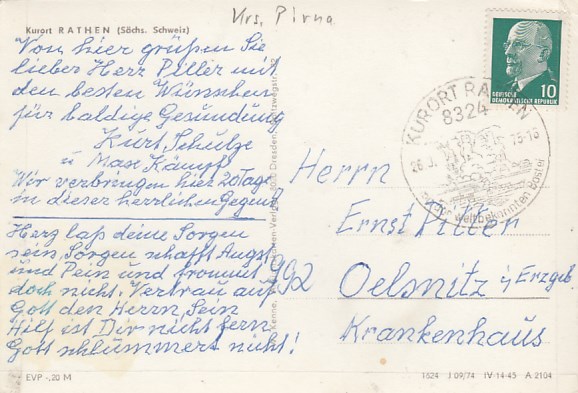 Krs. Pirna
Kurort RATHEN (Sächs. Schweiz)
Von hier grüßen Sie
lieber Herr Piller mit
den besten Wünschen
für baldige Gesundung
Kurt Schulze
u Max Kämpf
Wir verbringen hier 20 Tage
in dieser herrlichen Gegend
Herz laß deine Sorgen
sein, Sorgen schafft Angst
und Pein und frommt
doch nicht. Vertrau auf
Gott den Herrn, Sein
Hilf ist Dir nicht fern
Gott schlummert nicht!
EVP -,20 M
10
DEUTSCHE
DEMOKRATISCHE REPUBLIK
KURORT RATHEN
8324
-15-16
weltbekannten Bastei
Herrn
Ernst Piller
992 Oelsnitz i/Erzgeb
Krankenhaus
1624 J 09/74 IV-14-45 A 2104